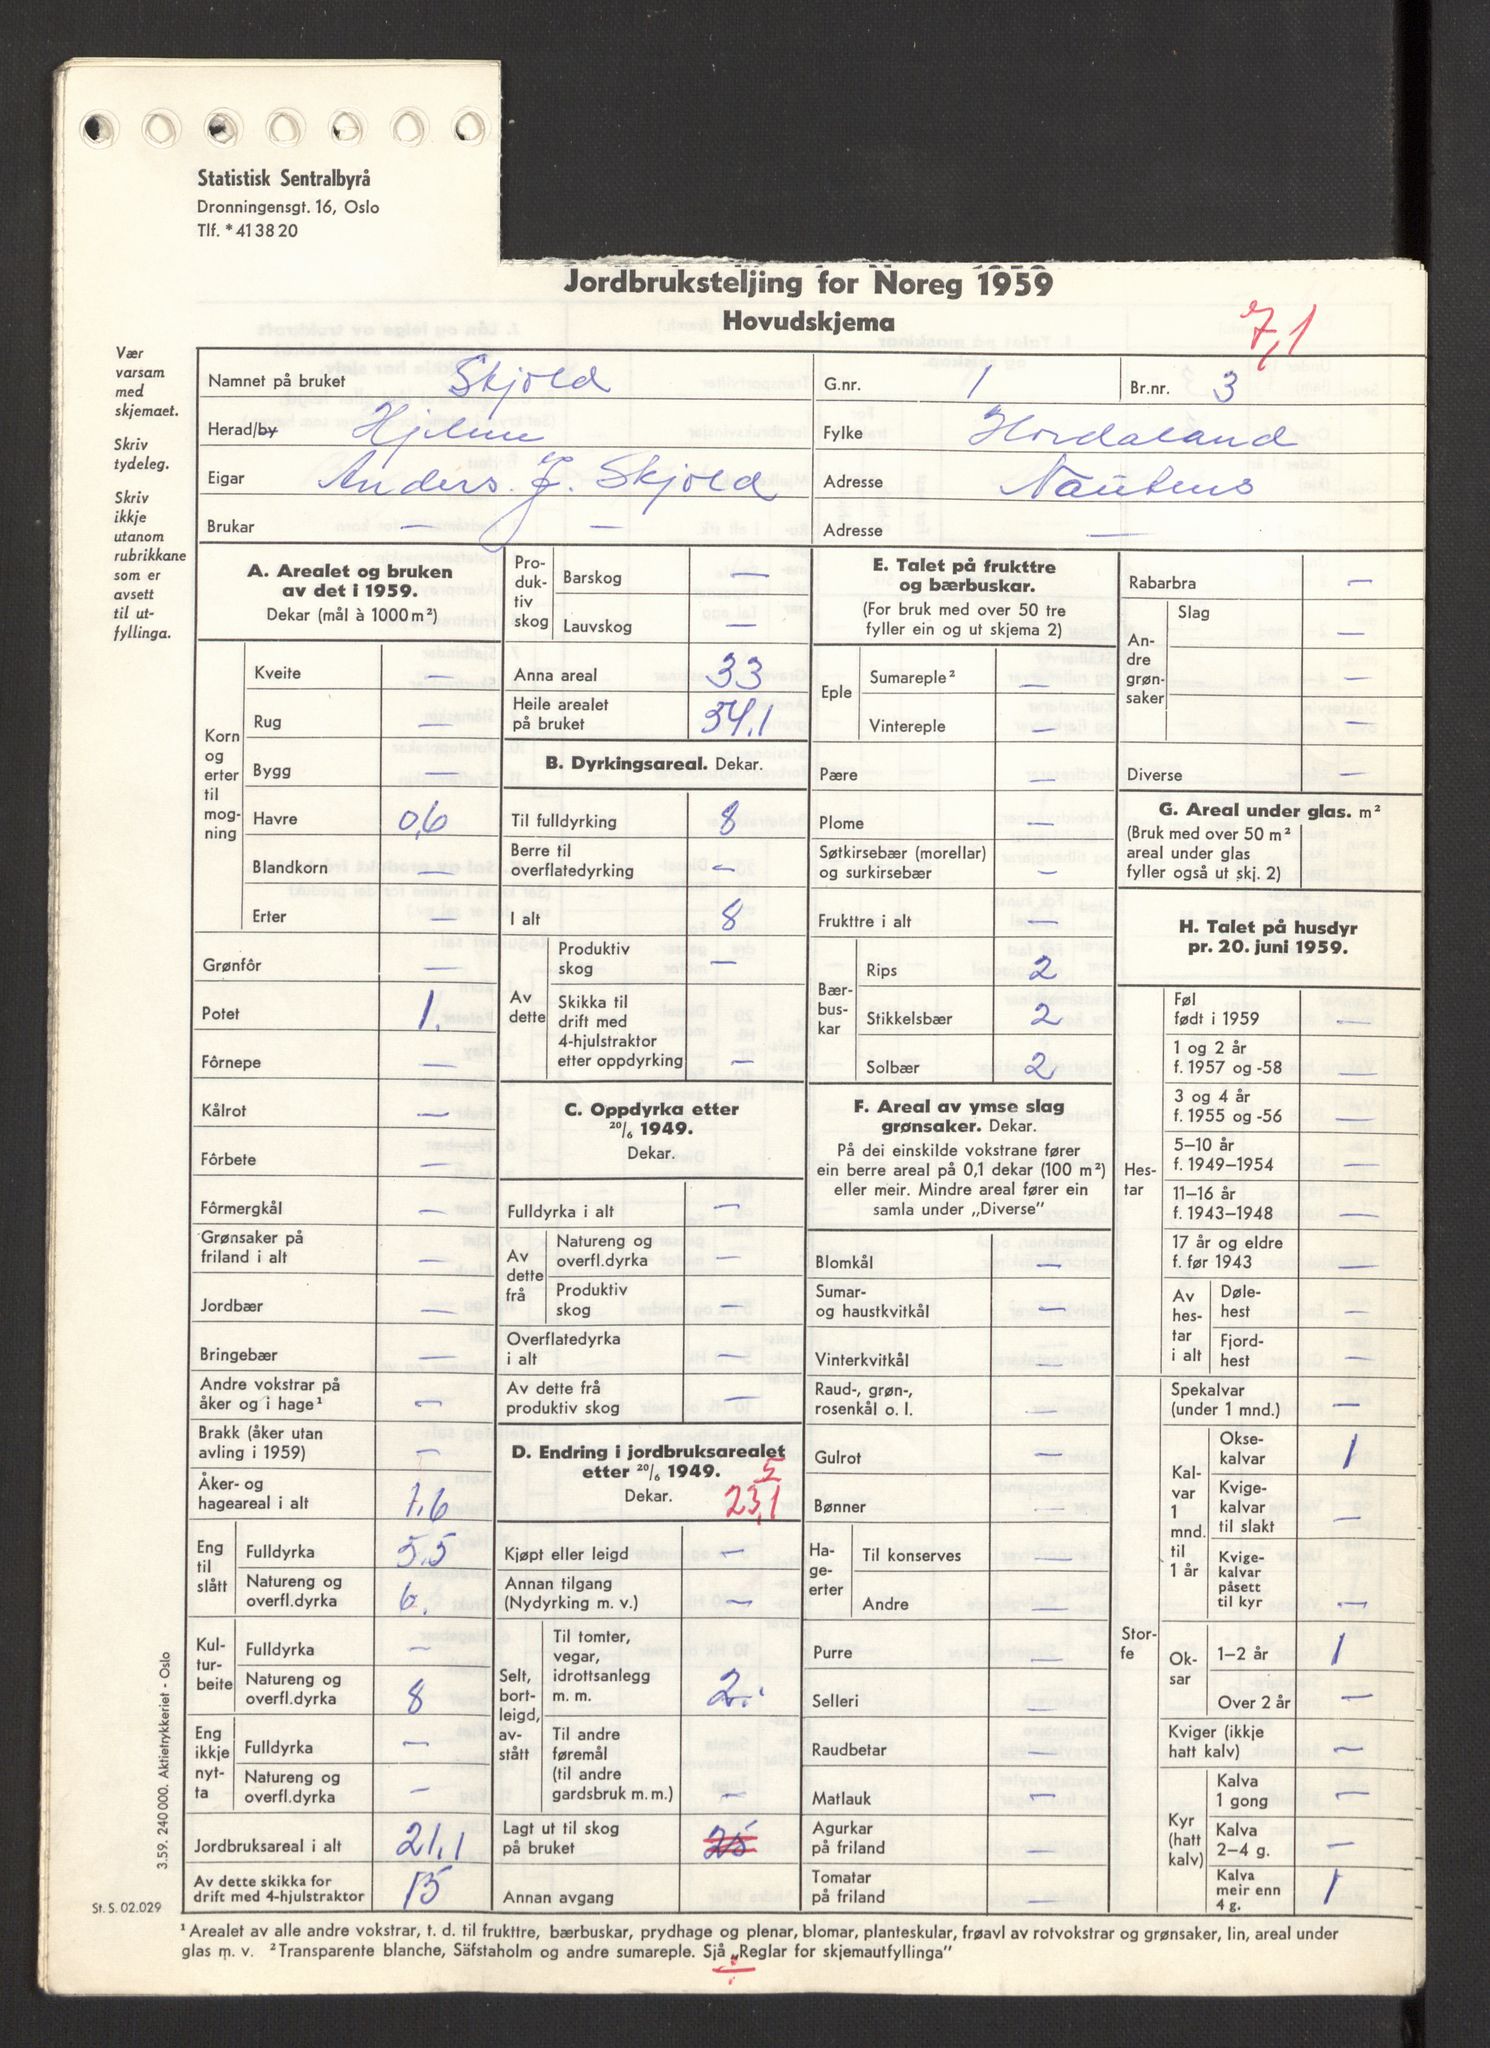 Statistisk Sentralbyrå
Dronningensgt. 16, Oslo
Tlf. * 41 38 20
Jordbruksteljing for Noreg 1959
Hovudskjema
7,1
Vær
varsam
med
skjemaet.
Skriv
tydeleg.
Skriv
ikkje
utanom
rubrikkane
som er
avsett
til ut-
fyllinga.
Namnet på bruket Skjold G.nr. 1 Br.nr. 3
Herad/by Hjelme Fylke Hordaland
Eigar Anders J. Skjold Adresse
Brukar — — Adresse —
A. Arealet og bruken
av det i 1959.
Dekar (mål à 1000 m²)
Korn
og
erter
til
mog-
ning
Kveite —
Rug —
Bygg —
Havre 0,6
Blandkorn —
Erter —
Grønfôr —
Potet 1.
Fôrnepe —
Kålrot —
Fôrbete —
Fôrmergkål —
Grønsaker på
friland i alt —
Jordbær —
Bringebær —
Andre vokstrar på
åker og i hage¹ —
Brakk (åker utan
avling i 1959) —
Åker- og
hageareal i alt 1,6
Eng
til
slått
Fulldyrka 5,5
Natureng og
overfl.dyrka 6.
Kul-
tur-
beite
Fulldyrka —
Natureng og
overfl.dyrka 8
Eng
ikkje
nyt-
ta
Fulldyrka —
Natureng og
overfl.dyrka —
Jordbruksareal i alt 21,1
Av dette skikka for
drift med 4-hjulstraktor 15
Pro-
duk-
tiv
skog
Barskog —
Lauvskog —
Anna areal 33
Heile arealet
på bruket 54,1
B. Dyrkingsareal. Dekar.
Til fulldyrking 8
Berre til
overflatedyrking —
I alt 8
Av
dette
Produktiv
skog —
Skikka til
drift med
4-hjulstraktor
etter oppdyrking —
C. Oppdyrka etter
20/6 1949.
Dekar.
Fulldyrka i alt —
Av
dette
frå
Natureng og
overfl.dyrka —
Produktiv
skog —
Overflatedyrka
i alt —
Av dette frå
produktiv skog —
D. Endring i jordbruksarealet
etter 20/6 1949.
Dekar.
5
23,1
Kjøpt eller leigd —
Annan tilgang
(Nydyrking m. v.) —
Selt,
bort-
leigd,
av-
stått
Til tomter,
vegar,
idrottsanlegg
m. m. 2.
Til andre
føremål
(til andre
gardsbruk m. m.) —
Lagt ut til skog
på bruket 25
Annan avgang
E. Talet på frukttre
og bærbuskar.
(For bruk med over 50 tre
fyller ein og ut skjema 2)
Eple
Sumareple² —
Vintereple —
Pære —
Plome —
Søtkirsebær (morellar)
og surkirsebær —
Frukttre i alt —
Bær-
bus-
kar
Rips 2
Stikkelsbær 2
Solbær 2
F. Areal av ymse slag
grønsaker. Dekar.
På dei einskilde vokstrane fører
ein berre areal på 0,1 dekar (100 m²)
eller meir. Mindre areal fører ein
samla under „Diverse”
Blomkål —
Sumar-
og haustkvitkål —
Vinterkvitkål —
Raud-, grøn-,
rosenkål o. l. —
Gulrot —
Bønner —
Ha-
ge-
erter
Til konserves —
Andre —
Purre —
Selleri —
Raudbetar —
Matlauk —
Agurkar
på friland —
Tomatar
på friland —
Rabarbra —
An-
dre
grøn-
saker
Slag
—
—
—
Diverse —
G. Areal under glas. m²
(Bruk med over 50 m²
areal under glas
fyller også ut skj. 2) —
H. Talet på husdyr
pr. 20. juni 1959.
Hes-
tar
Føl
født i 1959 —
1 og 2 år
f. 1957 og -58 —
3 og 4 år
f. 1955 og -56 —
5–10 år
f. 1949–1954 —
11–16 år
f. 1943–1948 —
17 år og eldre
f. før 1943 —
Av
hes-
tar
i alt
Døle-
hest —
Fjord-
hest —
Stor-
fe
Spekalvar
(under 1 mnd.) —
Kal-
var
1
mnd.
til
1 år
Okse-
kalvar 1
Kvige-
kalvar
til slakt —
Kvige-
kalvar
påsett
til kyr —
Ok-
sar
1–2 år 1
Over 2 år —
Kviger (ikkje
hatt kalv) —
Kyr
(hatt
kalv)
Kalva
1 gong —
Kalva
2–4 g. —
Kalva
meir enn
4 g. 1
3.59. 240 000. Aktietrykkeriet - Oslo
St. S. 02.029
¹ Arealet av alle andre vokstrar, t. d. til frukttre, bærbuskar, prydhage og plenar, blomar, planteskular, frøavl av rotvokstrar og grønsaker, lin, areal under
glas m. v. ² Transparente blanche, Säfstaholm og andre sumareple. Sjå „Reglar for skjemautfyllinga”